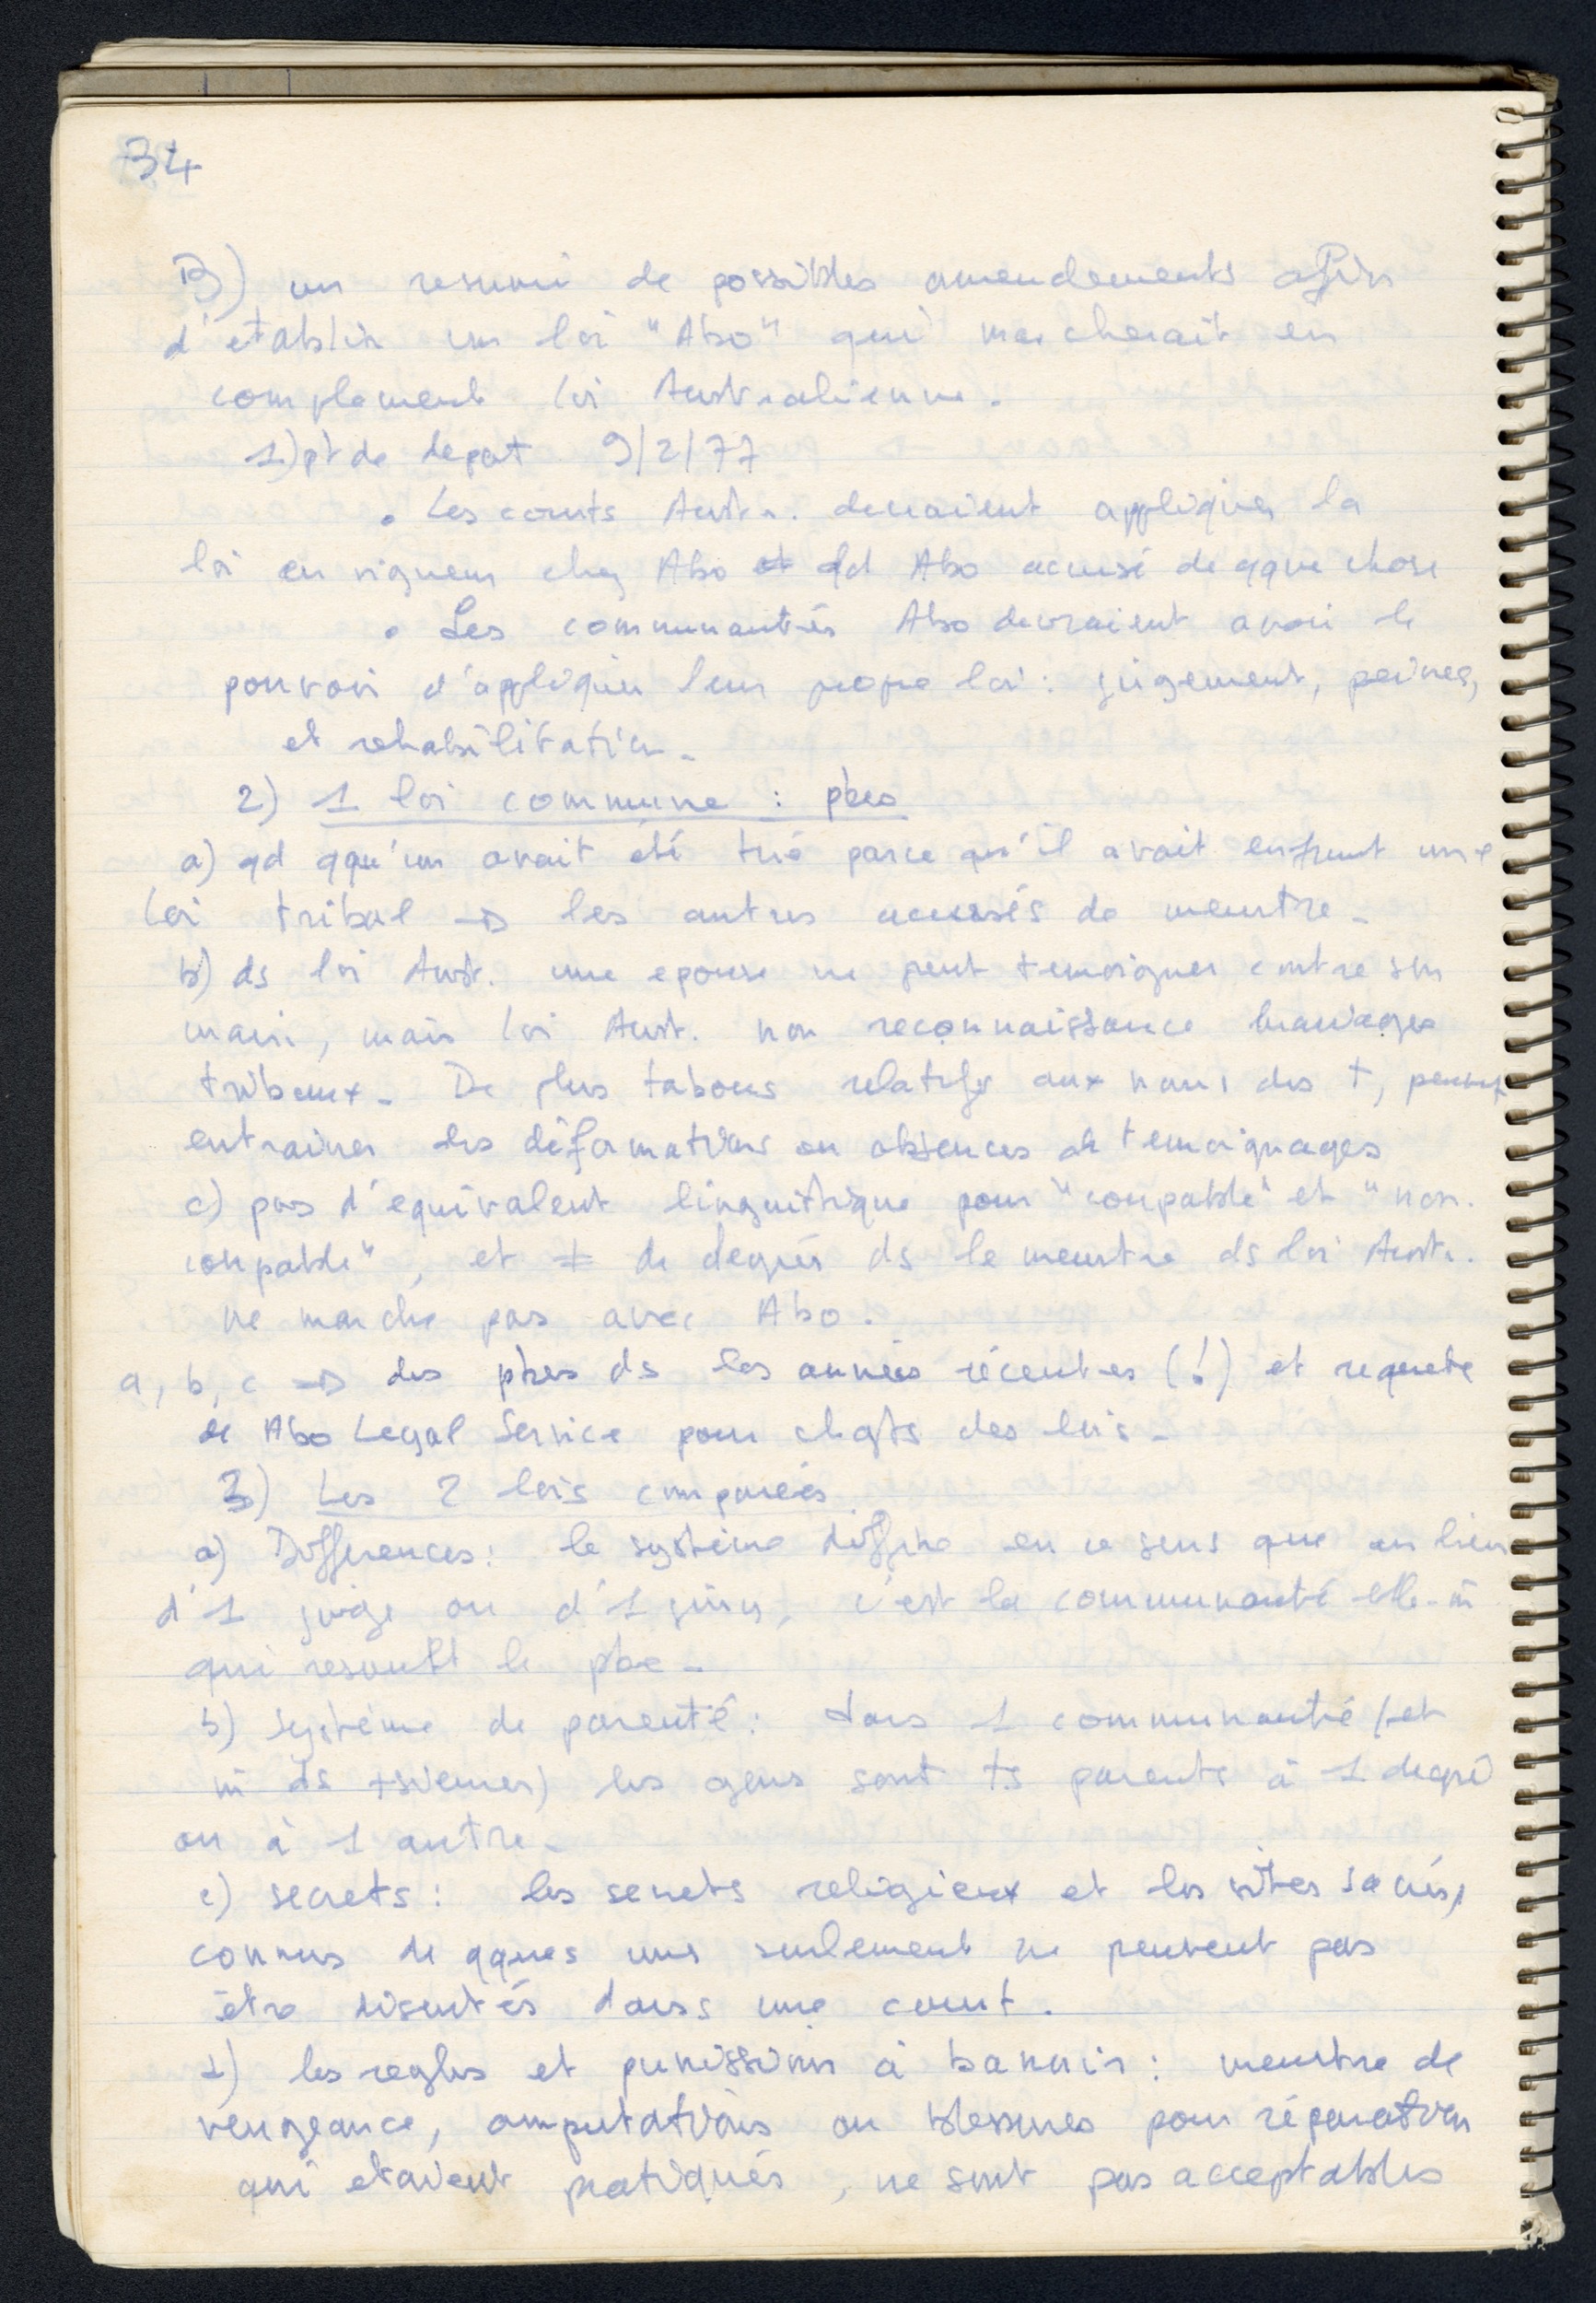 34
B) un resumé de possibles amendements afin
d'etablir un loi "Abo" qui marcherait en
complement loi Australienne.
1) pt de depat 9/2/77
• Les courts Austr. devraient appliquer la
loi en vigueur chez Abo qd Abo accusé de qque chose
• Les communautés Abo devraient avoir le
pouvoir d'appliquer leur propre loi : jugement, peines,
et rehabilitation -
2) 1 loi commune : pbes
a) qd qqu'un avait été tué parce qu'il avait enfreint une
loi tribal → les autres accusés de meurtre -
b) ds loi Aust. une epouse ne peut temoigner contre son
mari, mais loi Aust. non reconnaissance mariages
tribaux - De plus tabous relatifs aux noms des †, peuvent
entrainer des déformations ou absences de temoignages
c) pas d'equivalent linguistique pour "coupable" et "non.
coupable", et ≠ de degrés ds le meurtre ds loi Austr.
ne marche pas avec Abo.
a, b, c → des pbes ds les années récentes (!) et requete
de Abo Legal Service pour chgts des lois -
3) Les 2 lois comparées
a) Differences : le système diffère en ce sens que au lieu
d'1 juge ou d'1 jury, c'est la communauté elle-m̂
qui resoult le pbe -
b) système de parenté : dans 1 communauté (et
m̂ ds +sieurs) les gens sont ts parents à 1 degré
ou à 1 autre -
c) secrets : les secrets religieux et les rites sacrés,
connus de qques uns seulement ne peuvent pas
être discutés dans une court.
d) les regles et punissions à bannir : meurtre de
vengeance, amputations ou blessures pour réparation
qui etaient pratiqués, ne sont pas acceptables